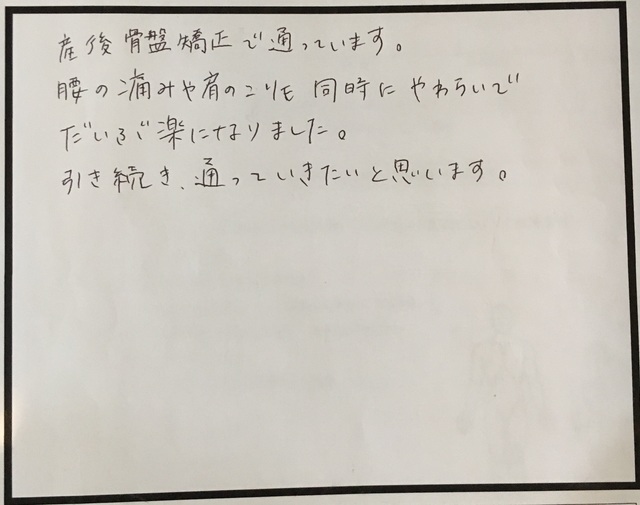 産後骨盤矯正で通っています。
腰の痛みや肩のこりも同時にやわらいで
だいぶ楽になりました。
引き続き、通っていきたいと思います。